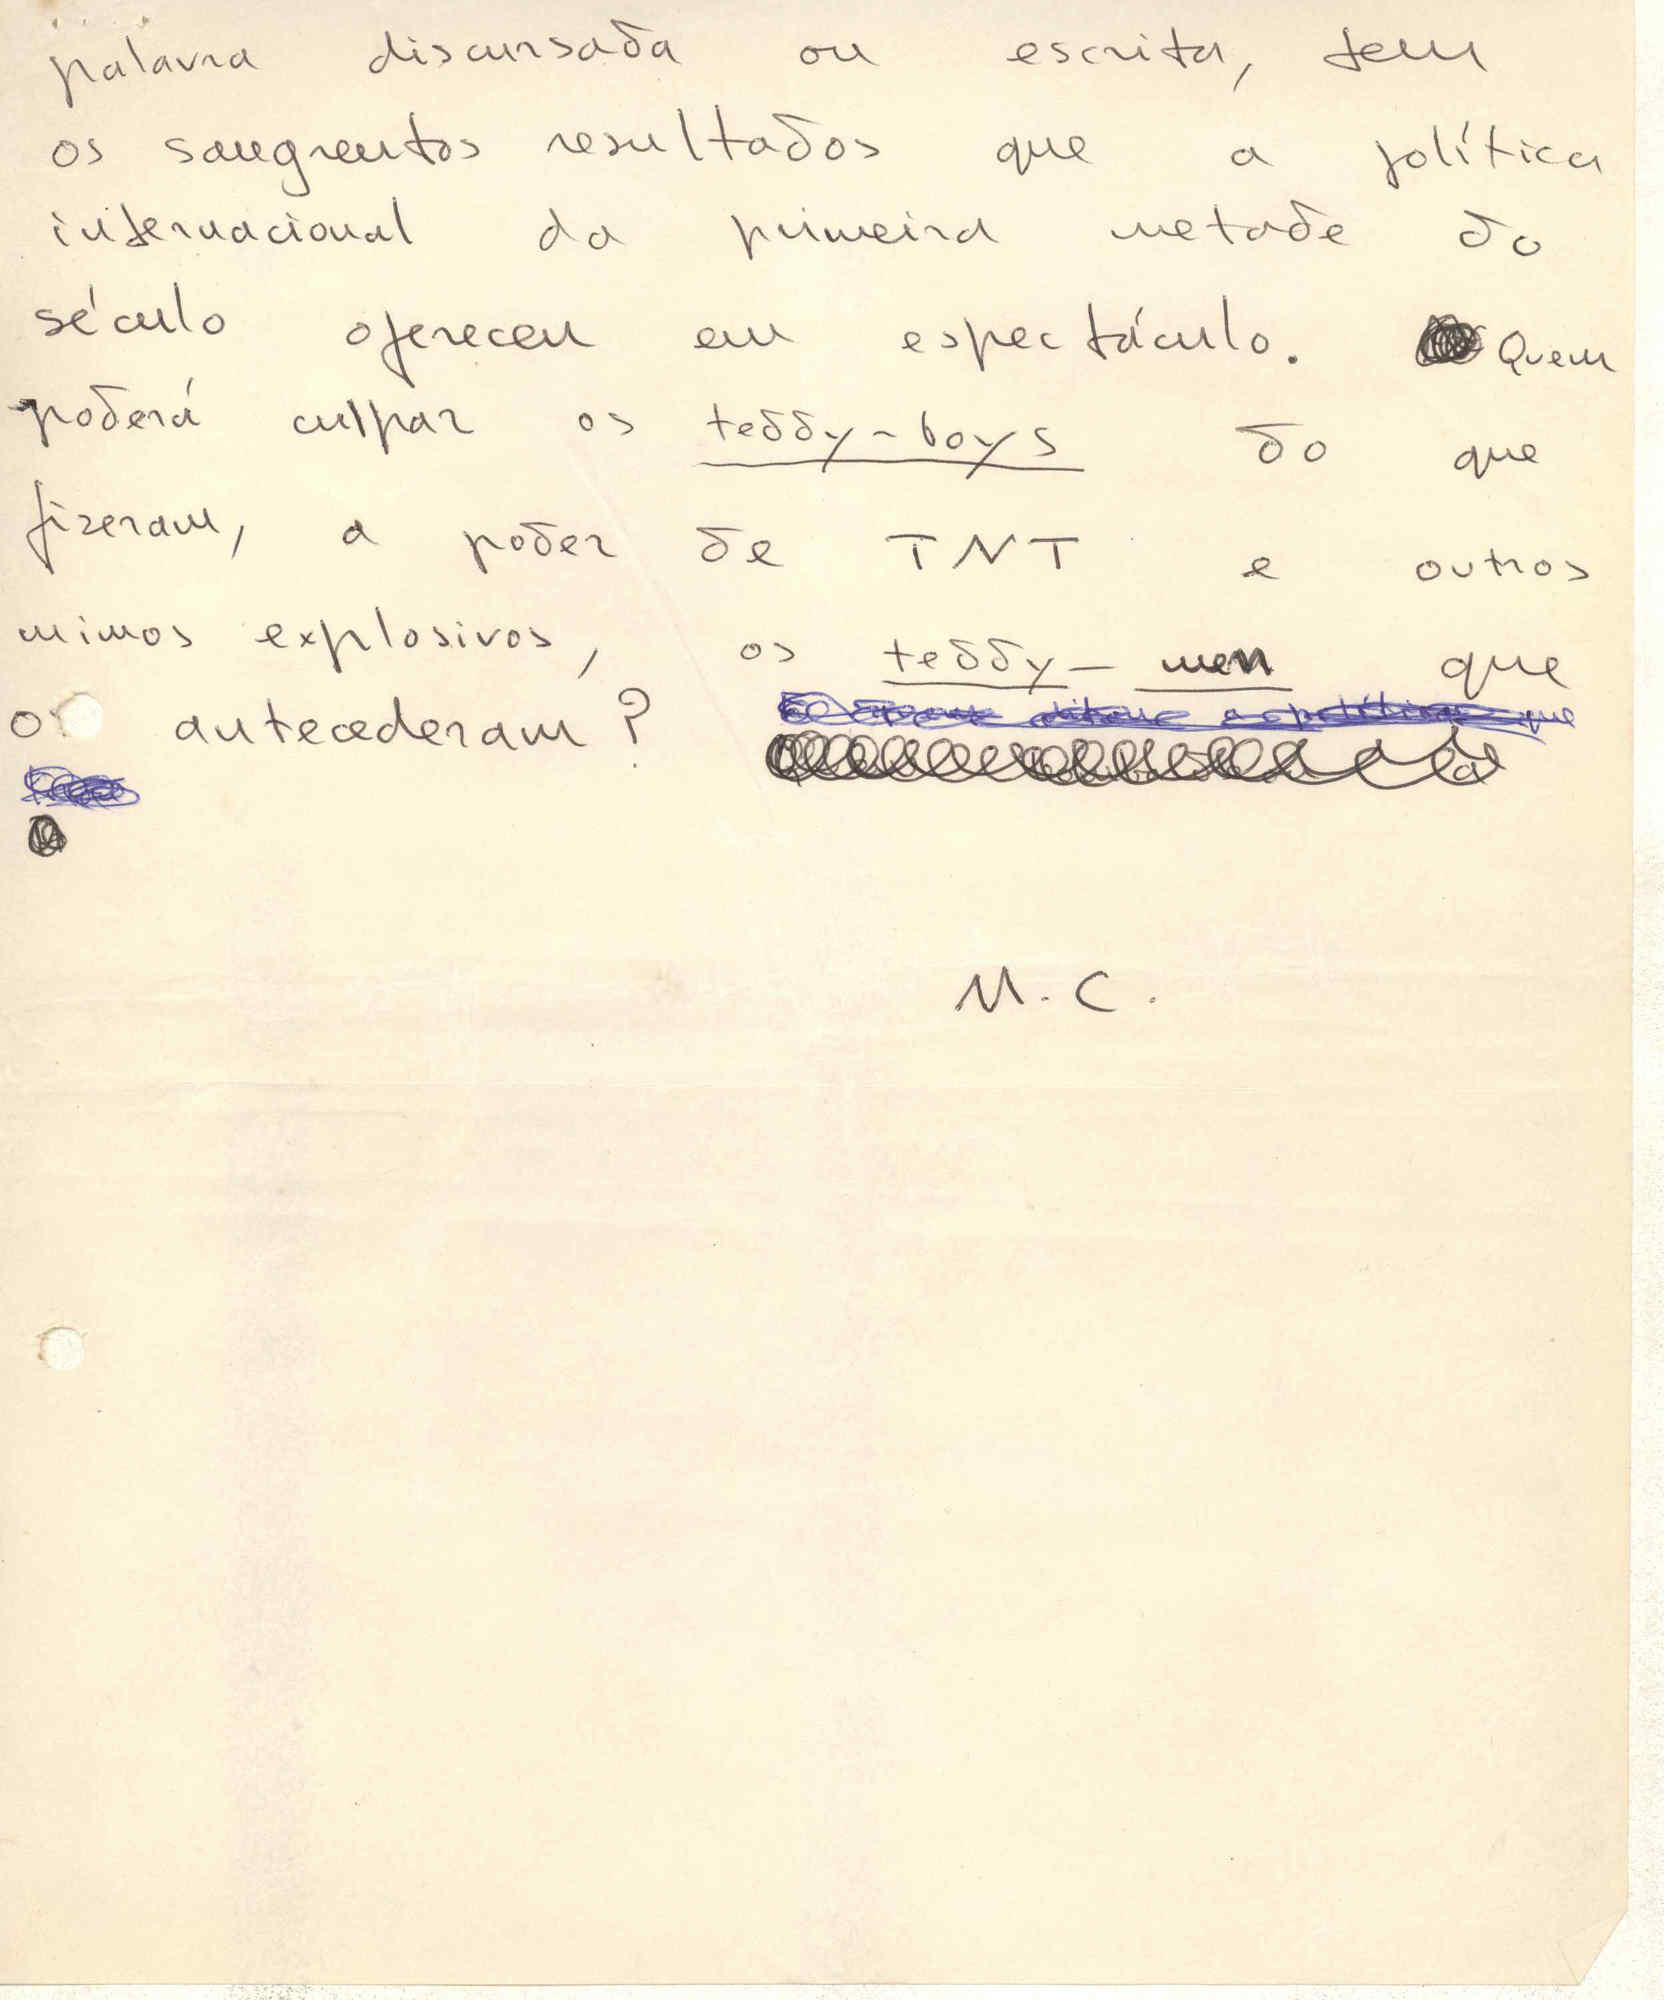 palavra discursada ou escrita, tem
os sangrentos resultados que a política
internacional da primeira metade do
século ofereceu em espectáculo. Quem
poderá culpar os teddy-boys do que
fizeram, a poder de TNT e outros
mimos explosivos, os teddy-men que
os antecederam?
M. C.